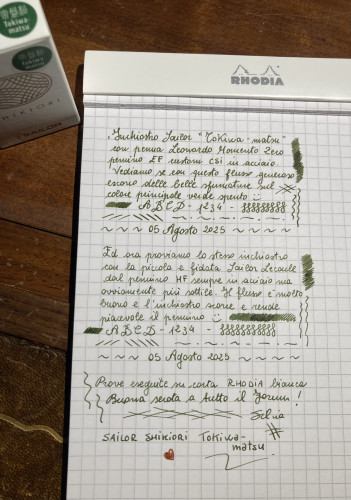 Tokiwa-
matsu
Tokiwa
matsu
SHIKIORI
SAILOR
RHODIA
Inchiostro Sailor "Tokiwa-matsu"
con penna Leonardo Momento Zero
pennino EF custom CSI in acciaio
Vediamo se con questo flusso generoso
escono delle belle sfumature sul
colore principale verde spento
ABCD - 1234 -
05 Agosto 2025
Ed ora proviamo lo stesso inchiostro
con la piccola e fidata Sailor Lecoule
dal pennino MF sempre in acciaio ma
ovviamente più sottile. Il flusso è molto
buono e l'inchiostro scorre e rende
piacevole il pennino
ABCD - 1234
05 Agosto 2025
Prove eseguite su carta RHODIA bianca
Buona serata a tutto il forum!
Silvia
SAILOR SHIKIORI TOKIWA-
matsu